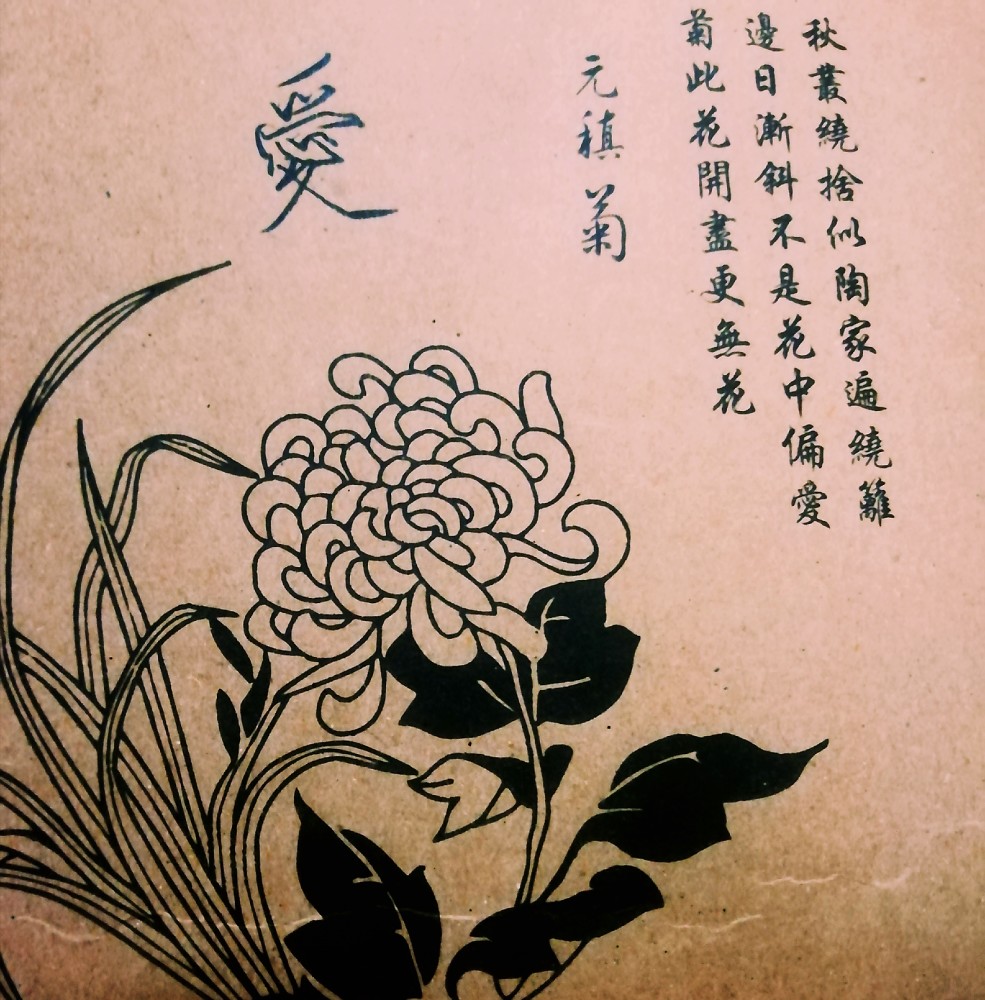 秋叢繞捨似陶家遍繞籬
邊日漸斜不是花中偏愛
菊此花開盡更無花
元稹 菊
愛